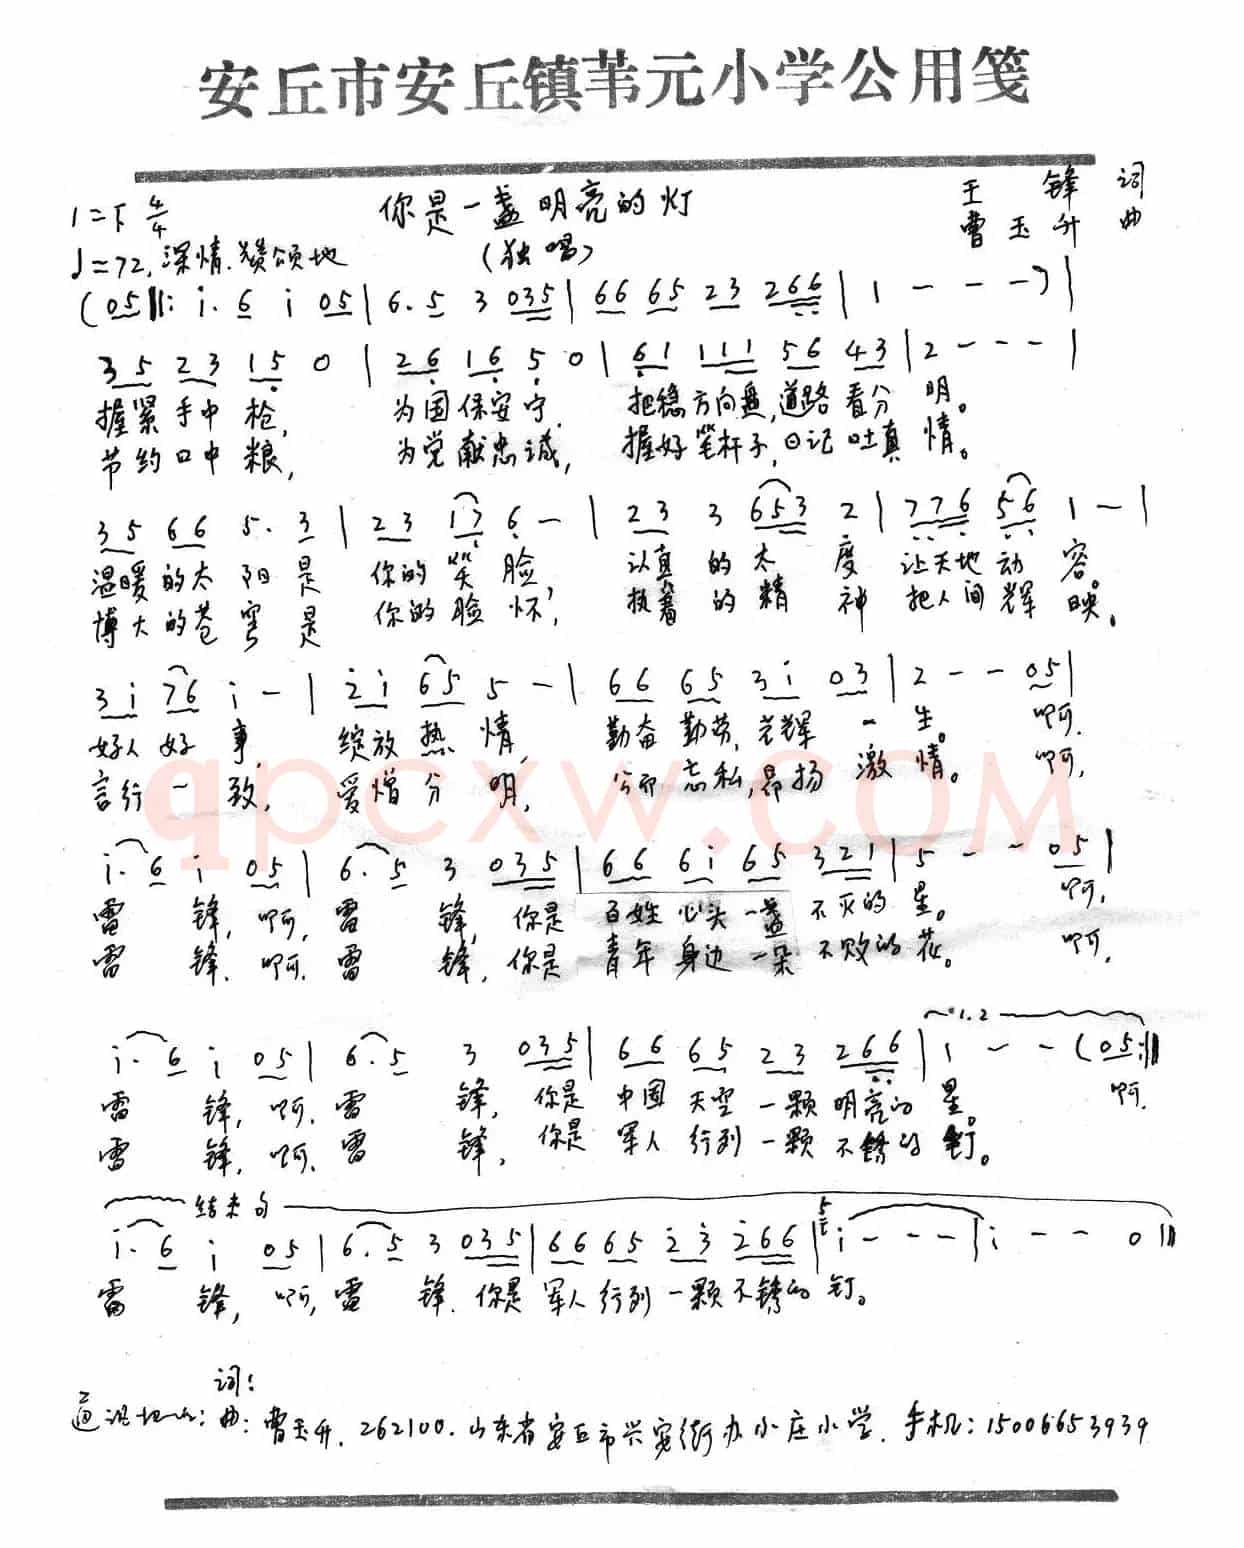 安丘市安丘镇苇元小学公用笺
1=F 4/4 你是一盏明亮的灯 王锋 词
♩=72, 深情.赞颂地 (独唱) 曹玉升 曲
(05‖: i. 6 i 05 | 6. 5 3 035 | 66 65 23 266 | 1 - - - ) |
35 23 15 0 | 26 16 5 0 | 61 111 56 43 | 2 - - - |
握紧手中枪, 为国保安宁. 把稳方向盘,道路看分明。
节约口中粮, 为党献忠诚, 握好笔杆子,日记吐真情。
35 66 5. 3 | 23 17 6 - | 23 3 653 2 | 776 56 1 - |
温暖的太阳是 你的笑脸, 认真的太度 让天地动容。
博大的苍穹是 你的脸怀, 执着的精神 把人间辉映。
3i 76 i - | 2i 65 5 - | 66 65 3i 03 | 2 - - 05 |
好人好事, 绽放热情, 勤奋勤劳,光辉一生。 啊,
言行一致, 爱憎分明, 公而忘私,昂扬激情。 啊,
i. 6 i 05 | 6. 5 3 035 | 66 6i 65 321 | 5 - - 05 |
雷锋,啊, 雷锋, 你是百姓心头一盏不灭的星。 啊,
雷锋.啊. 雷锋, 你是青年身边一朵不败的花。 啊,
1.2
i. 6 i 05 | 6. 5 3 035 | 66 65 23 266 | 1 - - (05 :‖
雷锋,啊. 雷锋, 你是中国天空一颗明亮的星。 啊.
雷锋,啊. 雷锋, 你是军人行列一颗不锈的钉。
结束句
i. 6 i 05 | 6. 5 3 035 | 66 65 23 266 | 5 i - - - | i - - 0 ‖
雷锋,啊,雷锋.你是军人行列一颗不锈的钉。
词:
通讯地址: 曲:曹玉升. 262100. 山东省安丘市兴安街办小庄小学. 手机:15006653939
qpcxw.COM